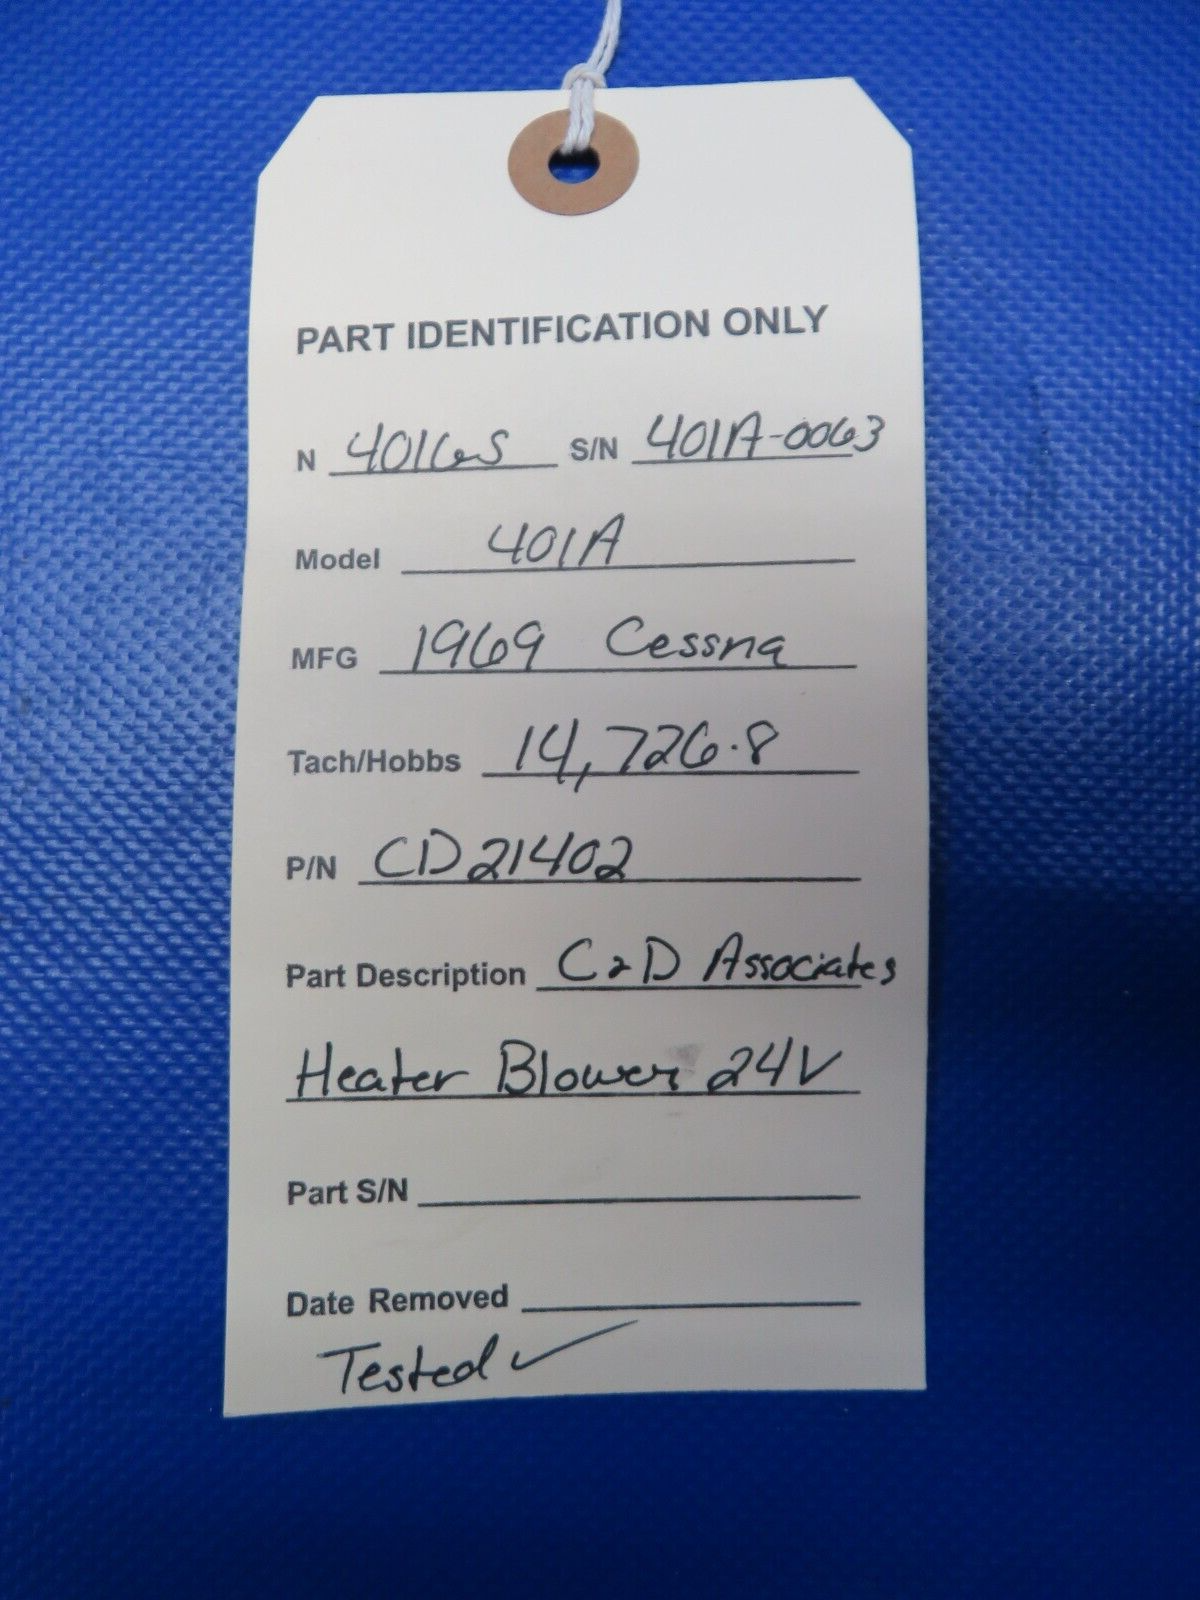 PART IDENTIFICATION ONLY
N 401GS S/N 401A-0063
Model 401A
MFG 1969 Cessna
Tach/Hobbs 14,726.8
P/N CD21402
Part Description C & D Associates
Heater Blower 24V
Part S/N
Date Removed
Tested ✓